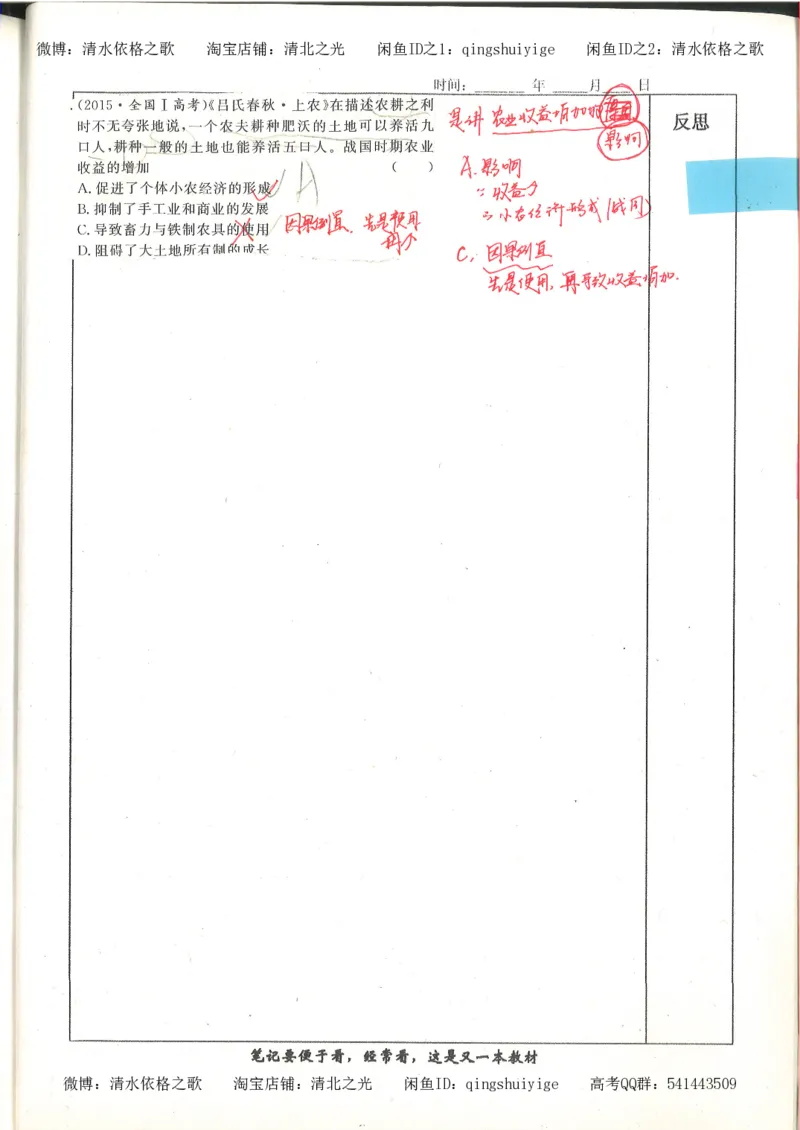 微博：清水依格之歌 淘宝店铺：清北之光 闲鱼ID之1：qingshuiyige 闲鱼ID之2：清水依格之歌
时间：______年______月______日
.(2015·全国Ⅰ高考)《吕氏春秋·上农》在描述农耕之利
时不无夸张地说，一个农夫耕种肥沃的土地可以养活九
口人，耕种一般的土地也能养活五口人。战国时期农业
收益的增加 （ ）
A.促进了个体小农经济的形成
B.抑制了手工业和商业的发展
C.导致畜力与铁制农具的使用
D.阻碍了大土地所有制的成长
A
因果倒置，先是使用
再个
是讲 农业收益增加的
影响
A.影响
∵收益↑
∴小农经济形成(战国)
C，因果倒置
先是使用，再导致收益增加.
反思
笔记要便于看，经常看，这是又一本教材
微博：清水依格之歌 淘宝店铺：清北之光 闲鱼ID：qingshuiyige 高考QQ群：541443509